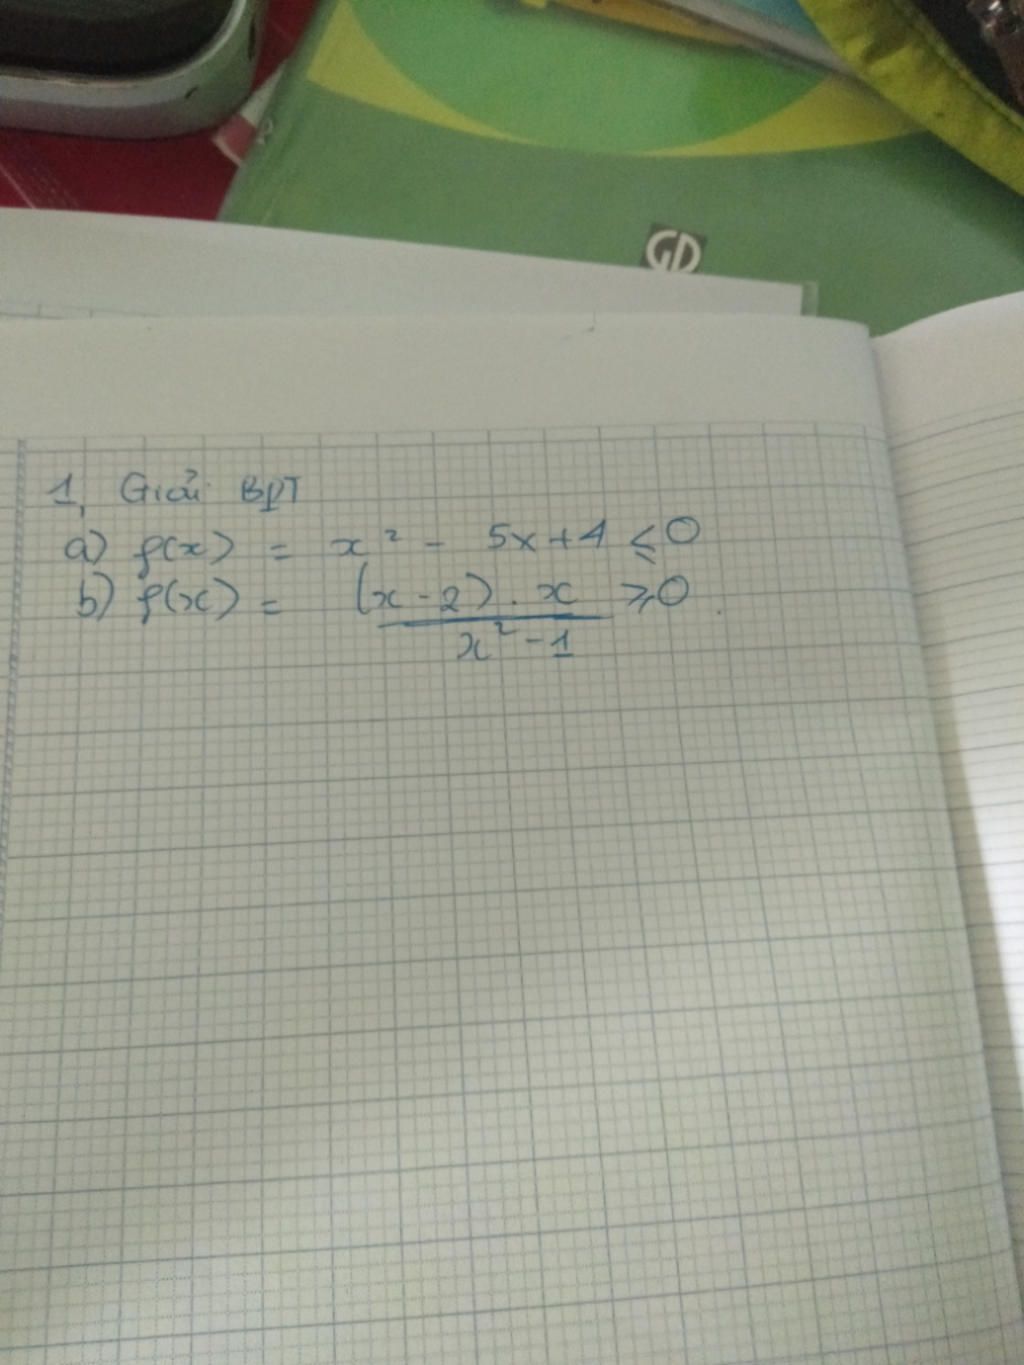 GD
1, Giải BPT
a) f(x) = x² - 5x+4 ≤0
b) f(x) = (x-2).x / x²-1 ≥0.